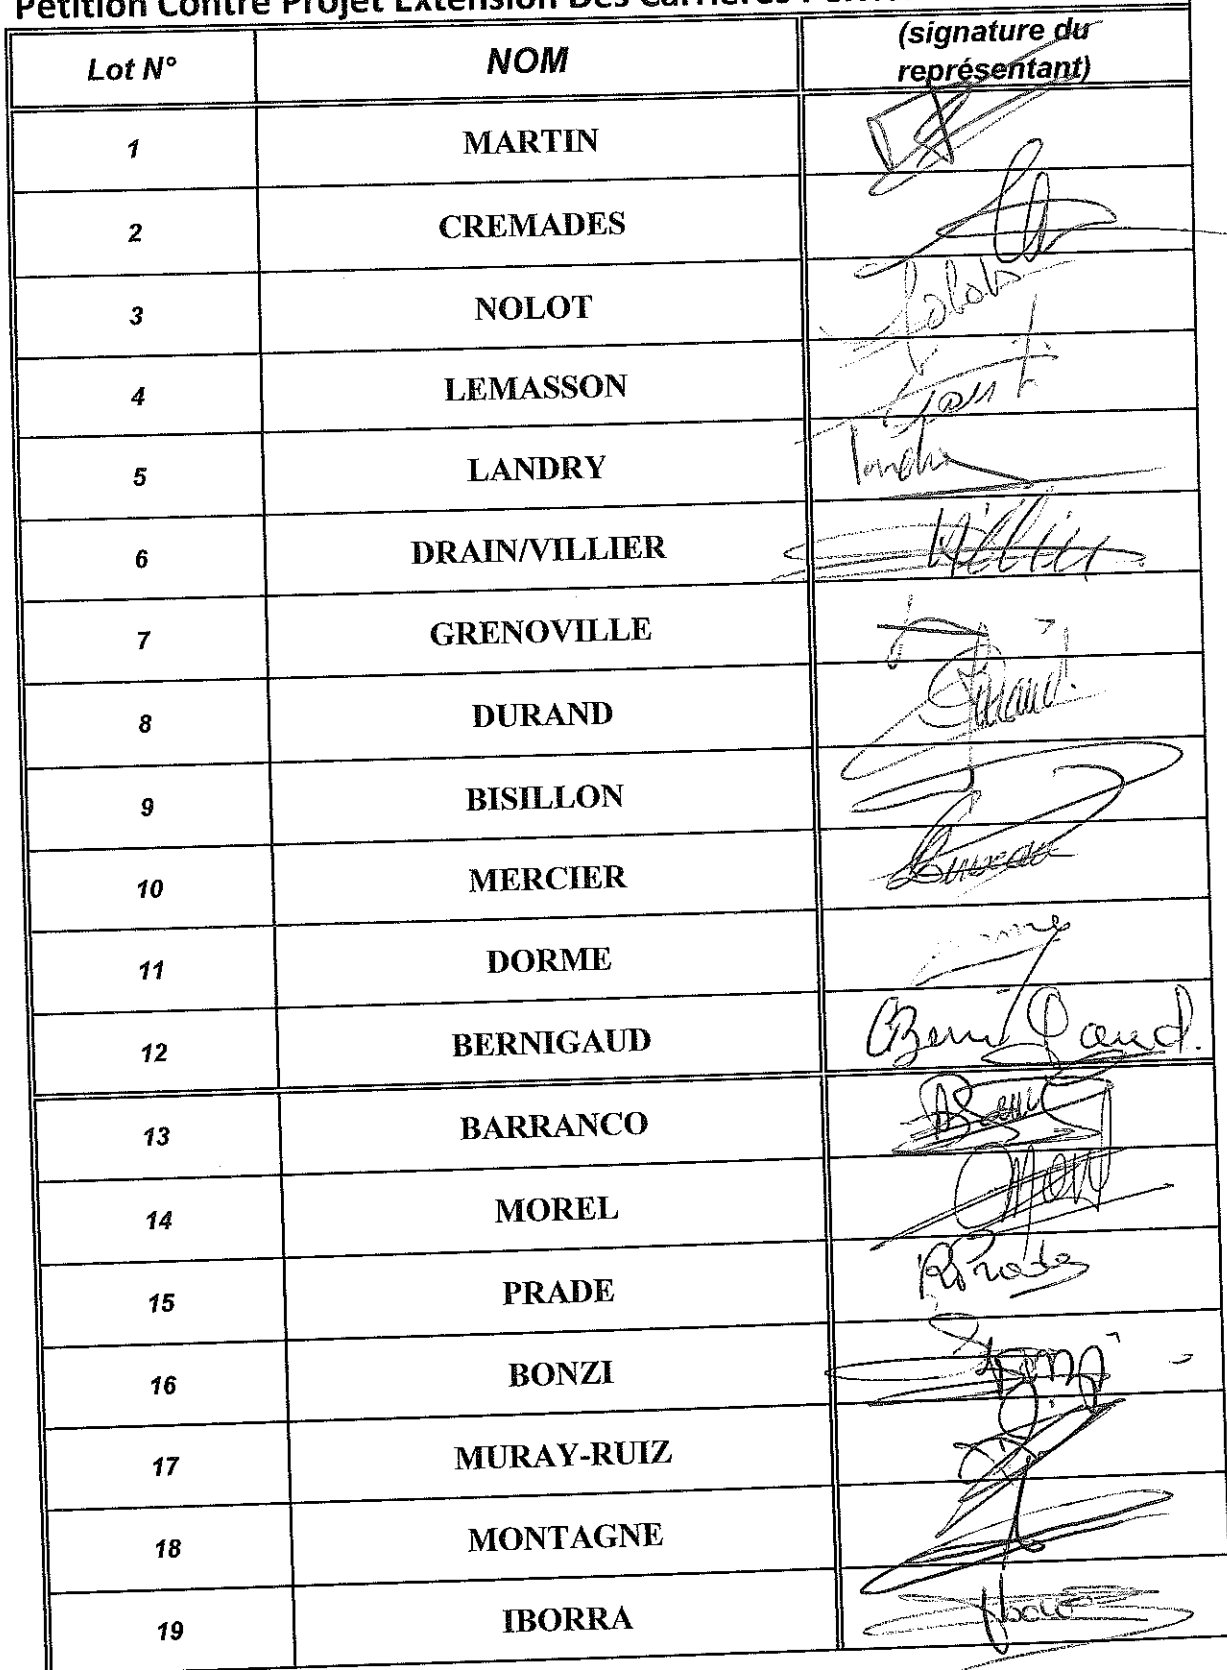 Pétition Contre Projet Extension Des Carrières
Lot N° NOM (signature du représentant)
1 MARTIN
2 CREMADES
3 NOLOT Nolot
4 LEMASSON
5 LANDRY
6 DRAIN/VILLIER Villier
7 GRENOVILLE
8 DURAND Durand
9 BISILLON
10 MERCIER
11 DORME
12 BERNIGAUD Bernigaud.
13 BARRANCO
14 MOREL Morel
15 PRADE Prade
16 BONZI Bonzi
17 MURAY-RUIZ
18 MONTAGNE
19 IBORRA